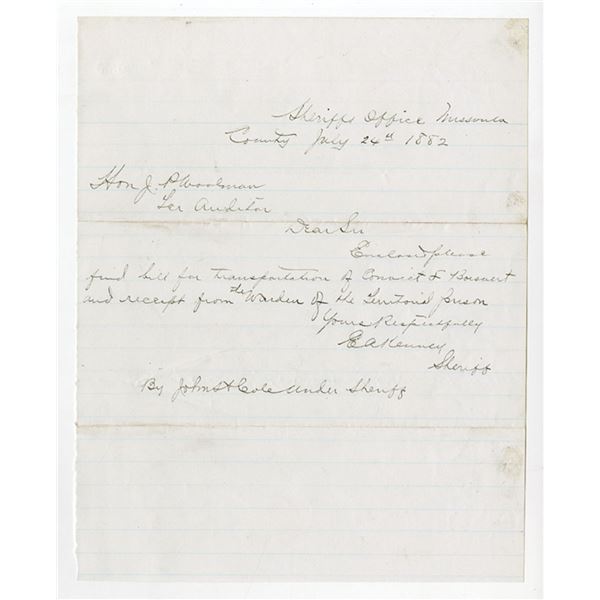 Sheriffs Office Missoula
County July 24th 1882
Hon J. P. Woolman
Ter Auditor
Dear Sir
Enclosed please
find bill for transportation of Convict F Boisvert
and receipt from the Warden of the Territorial prison
Yours Respectfully
E A Kenney
Sheriff
By John S Cole Under Sheriff